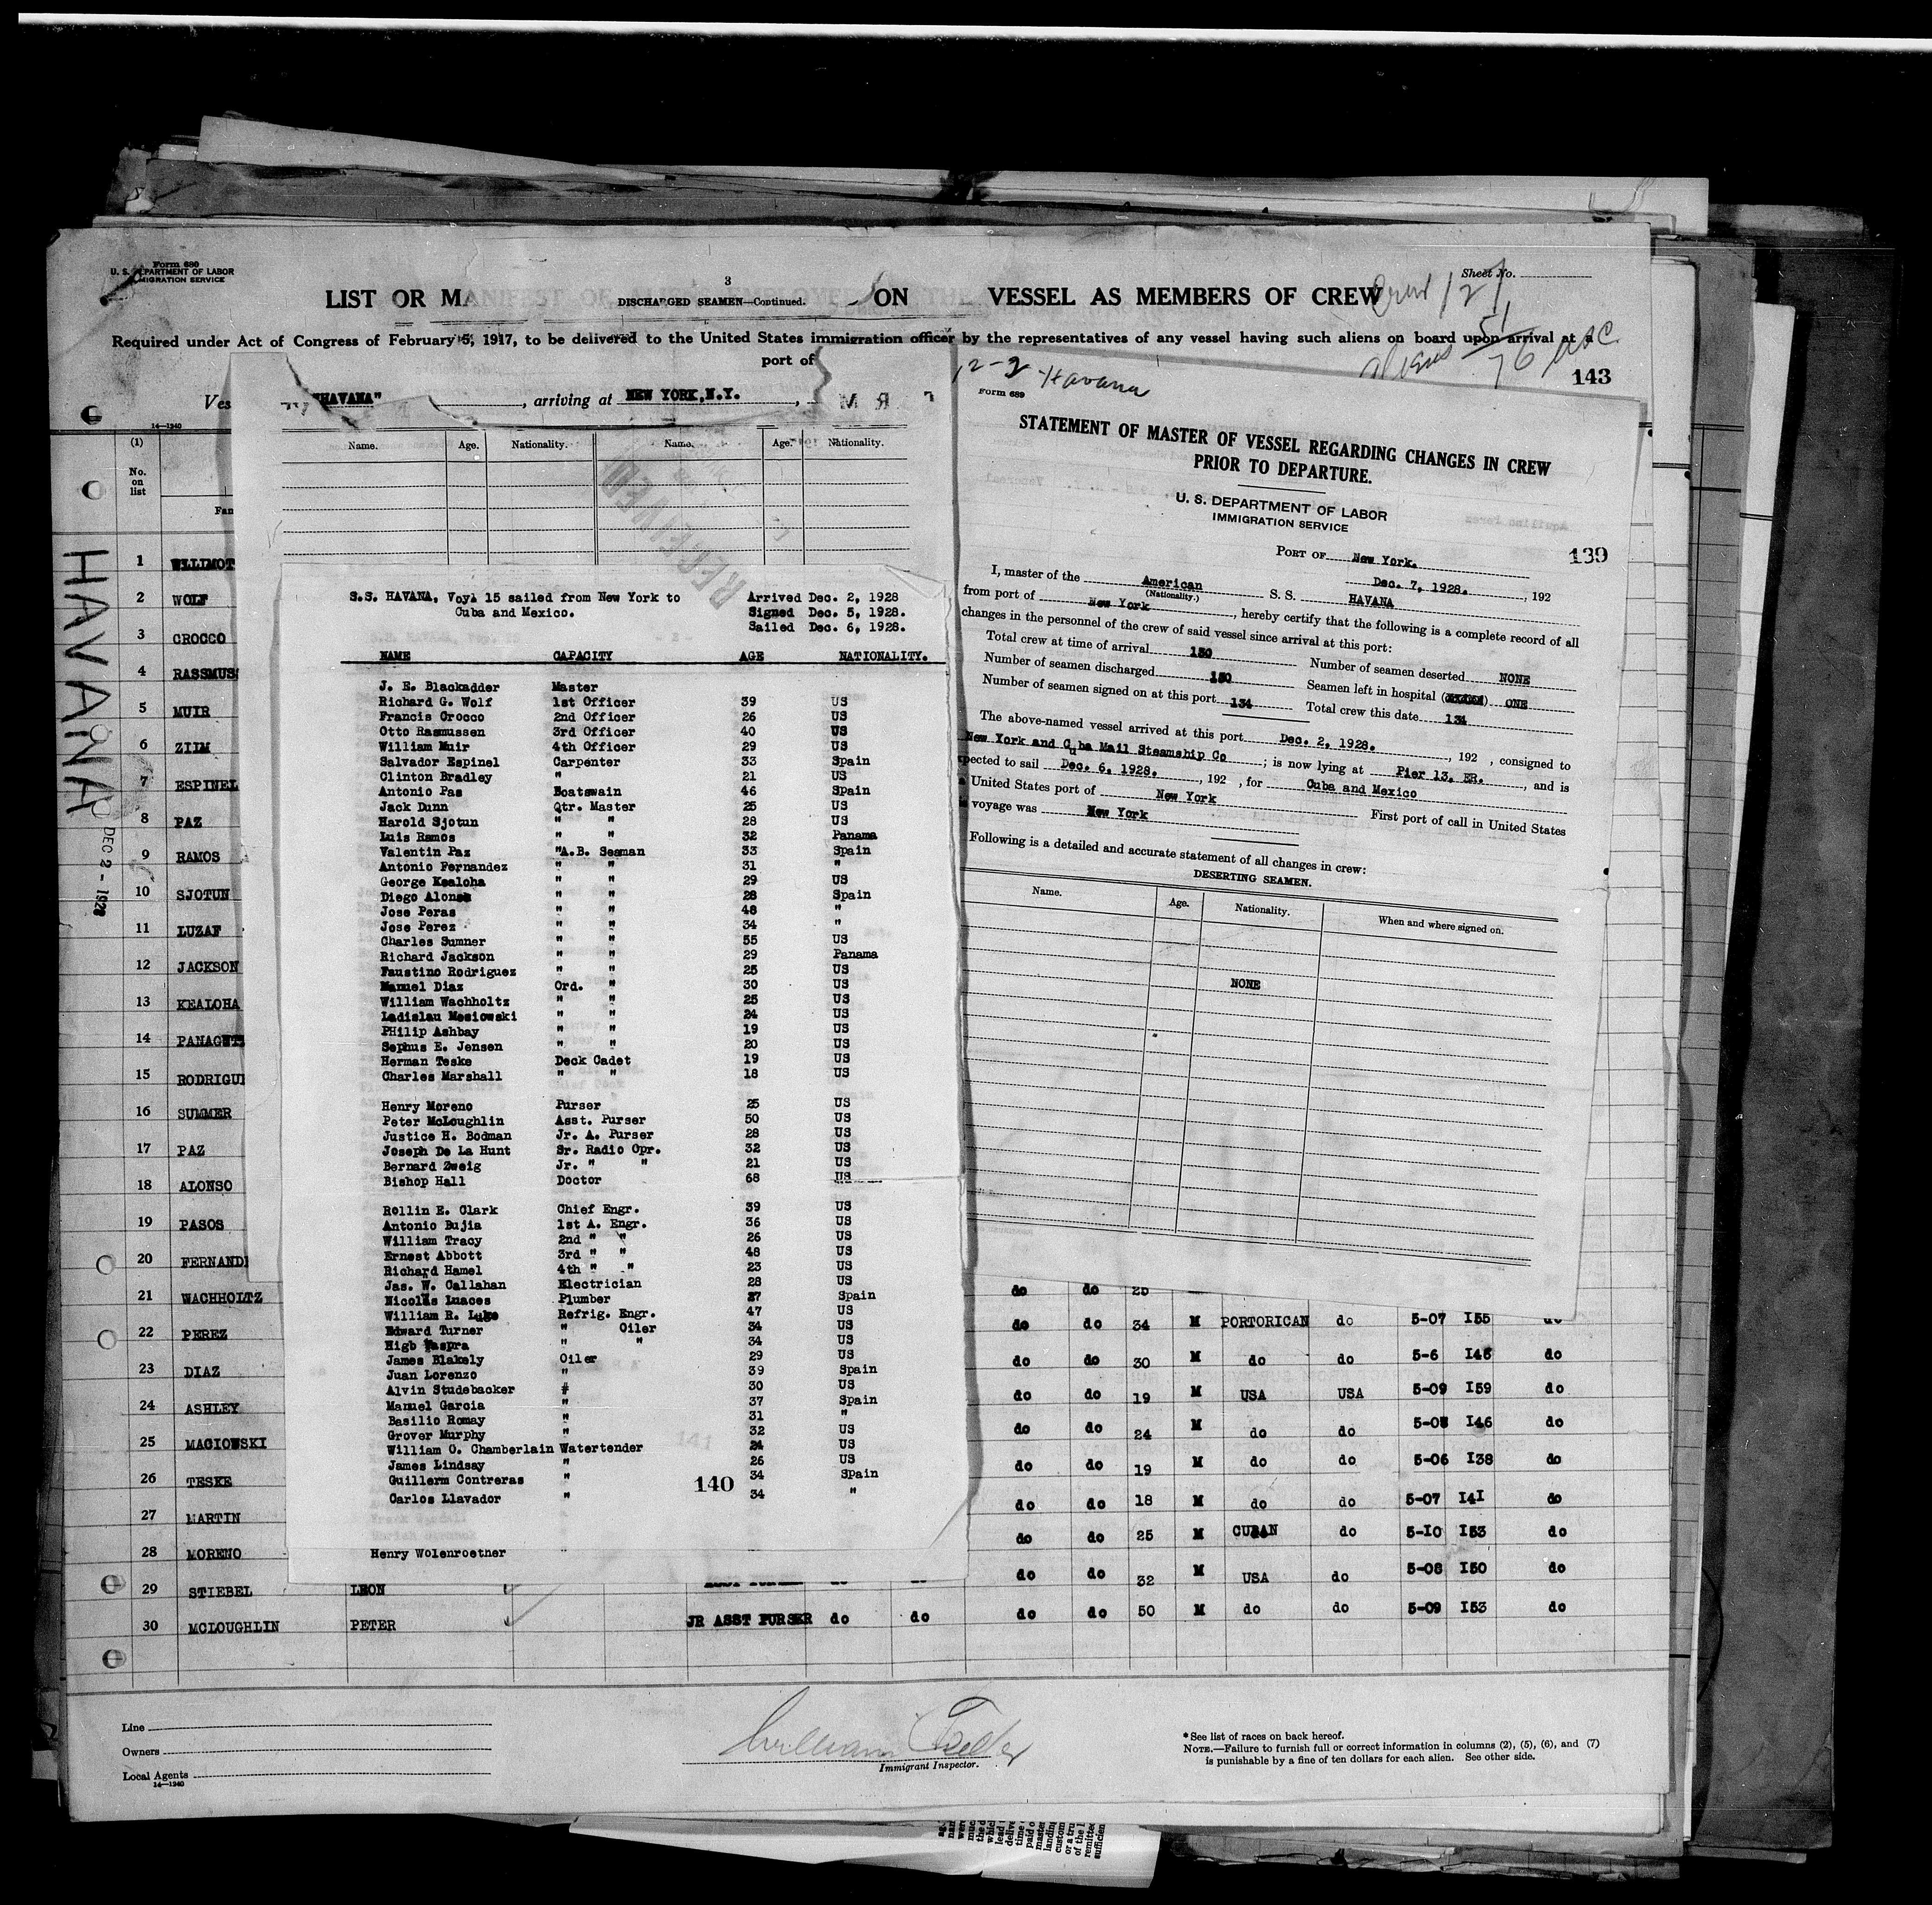 Form 689
U. S. DEPARTMENT OF LABOR
IMMIGRATION SERVICE
Sheet No.
3
LIST OR MANIFEST OF ON VESSEL AS MEMBERS OF CREW
DISCHARGED SEAMEN—Continued.
Crew 127
51
aliens 76
Required under Act of Congress of February 5, 1917, to be delivered to the United States immigration officer by the representatives of any vessel having such aliens on board upon arrival at a
port of
143
"HAVANA" , arriving at NEW YORK,N.Y. ,
14—1940
(1)
No. on list
HAVANA
DEC 2 - 1928
1 WILLIMOT
2 WOLF
3 CROCCO
4 RASSMUS
5 MUIR
6 ZIIM
7 ESPINEL
8 PAZ
9 RAMOS
10 SJOTUN
11 LUZAF
12 JACKSON
13 KEALOHA
14
15 RODRIGUE
16 SUMMER
17 PAZ
18 ALONSO
19 PASOS
20 FERNAND
21 WACHHOLTZ
22 PEREZ
23 DIAZ
24 ASHLEY
25 MACIOWSKI
26 TESKE
27 MARTIN
28 MORENO
29 STIEBEL LEON
30 MCLOUGHLIN PETER JR ASST PURSER do do do do 50 M do do 5-09 153 do
Name. Age. Nationality. Name. Age. Nationality.
RECEIVED
S.S. HAVANA, Voy. 15 sailed from New York to Cuba and Mexico.
Arrived Dec. 2, 1928
Signed Dec. 5, 1928.
Sailed Dec. 6, 1928.
NAME CAPACITY AGE NATIONALITY.
J. E. Blackadder Master
Richard G. Wolf 1st Officer 39 US
Francis Crocco 2nd Officer 26 US
Otto Rasmussen 3rd Officer 40 US
William Muir 4th Officer 29 US
Salvador Espinel Carpenter 33 Spain
Clinton Bradley " 21 US
Antonio Pas Boatswain 46 Spain
Jack Dunn Qtr. Master 25 US
Harold Sjotun " " 28 US
Luis Ramos " " 32 Panama
Valentin Paz "A.B. Seaman 33 Spain
Antonio Fernandez " " 31 "
George Kealoha " " 29 US
Diego Alonso " " 28 Spain
Jose Peras " " 48 "
Jose Perez " " 34 "
Charles Sumner " " 55 US
Richard Jackson " " 29 Panama
Faustino Rodriguez " " 25 US
Manuel Diaz Ord. " 30 US
William Wachholtz " " 25 US
Ladislau Mesiowski " " 24 US
PHilip Ashbay " " 19 US
Sephus E. Jensen " " 20 US
Herman Teske Deck Cadet 19 US
Charles Marshall " " 18 US
Henry Moreno Purser 25 US
Peter McLoughlin Asst. Purser 50 US
Justice H. Bodman Jr. A. Purser 28 US
Joseph De La Hunt Sr. Radio Opr. 32 US
Bernard Zweig Jr. " " 21 US
Bishop Hall Doctor 68 US
Rollin E. Clark Chief Engr. 39 US
Antonio Bujia 1st A. Engr. 36 US
William Tracy 2nd " " 26 US
Ernest Abbott 3rd " " 48 US
Richard Hamel 4th " " 23 US
Jas. W. Callahan Electrician 28 US
Nicolas Luaces Plumber 27 Spain
William R. Luke Refrig. Engr. 47 US
Edward Turner " Oiler 34 US
Higb Vaspra " " 34 US
James Blakely Oiler 29 US
Juan Lorenzo " 39 Spain
Alvin Studebacker # 30 US
Manuel Garcia " 37 Spain
Basilio Romay " 31 "
Grover Murphy " 32 US
William O. Chamberlain Watertender 24 US
James Lindsay " 26 US
Guillerm Contreras " 34 Spain
Carlos Llavador " 34 "
140
Henry Wolenroetner
12-2 Havana
Form 689
STATEMENT OF MASTER OF VESSEL REGARDING CHANGES IN CREW
PRIOR TO DEPARTURE.
U. S. DEPARTMENT OF LABOR
IMMIGRATION SERVICE
139
PORT OF New York.
Dec. 7, 1928. , 192
I, master of the American S. S. HAVANA
(Nationality.)
from port of New York , hereby certify that the following is a complete record of all
changes in the personnel of the crew of said vessel since arrival at this port:
Total crew at time of arrival 130 Number of seamen deserted NONE
Number of seamen discharged 130 Seamen left in hospital ONE
Number of seamen signed on at this port 134 Total crew this date 134
The above-named vessel arrived at this port Dec. 2, 1928. , 192 , consigned to
New York and Cuba Mail Steamship Co ; is now lying at Pier 13, ER. , and is
pected to sail Dec. 6, 1928. , 192 , for Cuba and Mexico
United States port of New York First port of call in United States
voyage was New York
Following is a detailed and accurate statement of all changes in crew:
DESERTING SEAMEN.
Name. Age. Nationality. When and where signed on.
NONE
do do 25
do do 34 M PORTORICAN do 5-07 155 do
do do 30 M do do 5-6 145 do
do do 19 M USA USA 5-09 159 do
do do 24 M do do 5-08 146 do
do do 19 M do do 5-06 138 do
do do 18 M do do 5-07 141 do
do do 25 M CUBAN do 5-10 153 do
do do 32 M USA do 5-08 150 do
Line
Owners
Local Agents
14—1940
Immigrant Inspector.
* See list of races on back hereof.
NOTE.—Failure to furnish full or correct information in columns (2), (5), (6), and (7)
is punishable by a fine of ten dollars for each alien. See other side.